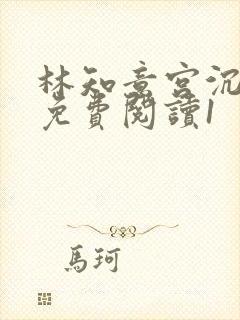 林知意宮沉
免費閱讀1
馬珂